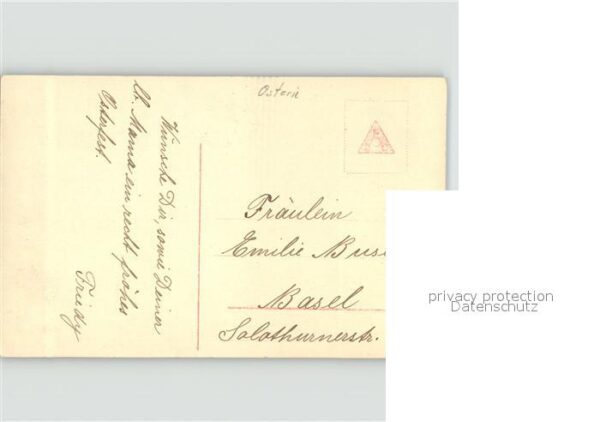 Ostern
Wünsche Dir, sowie Deiner
lb. Mama ein recht frohes
Osterfest.
Friedy
Fräulein
Emilie Busi
Basel
Solothurnerstr.
privacy protection
Datenschutz